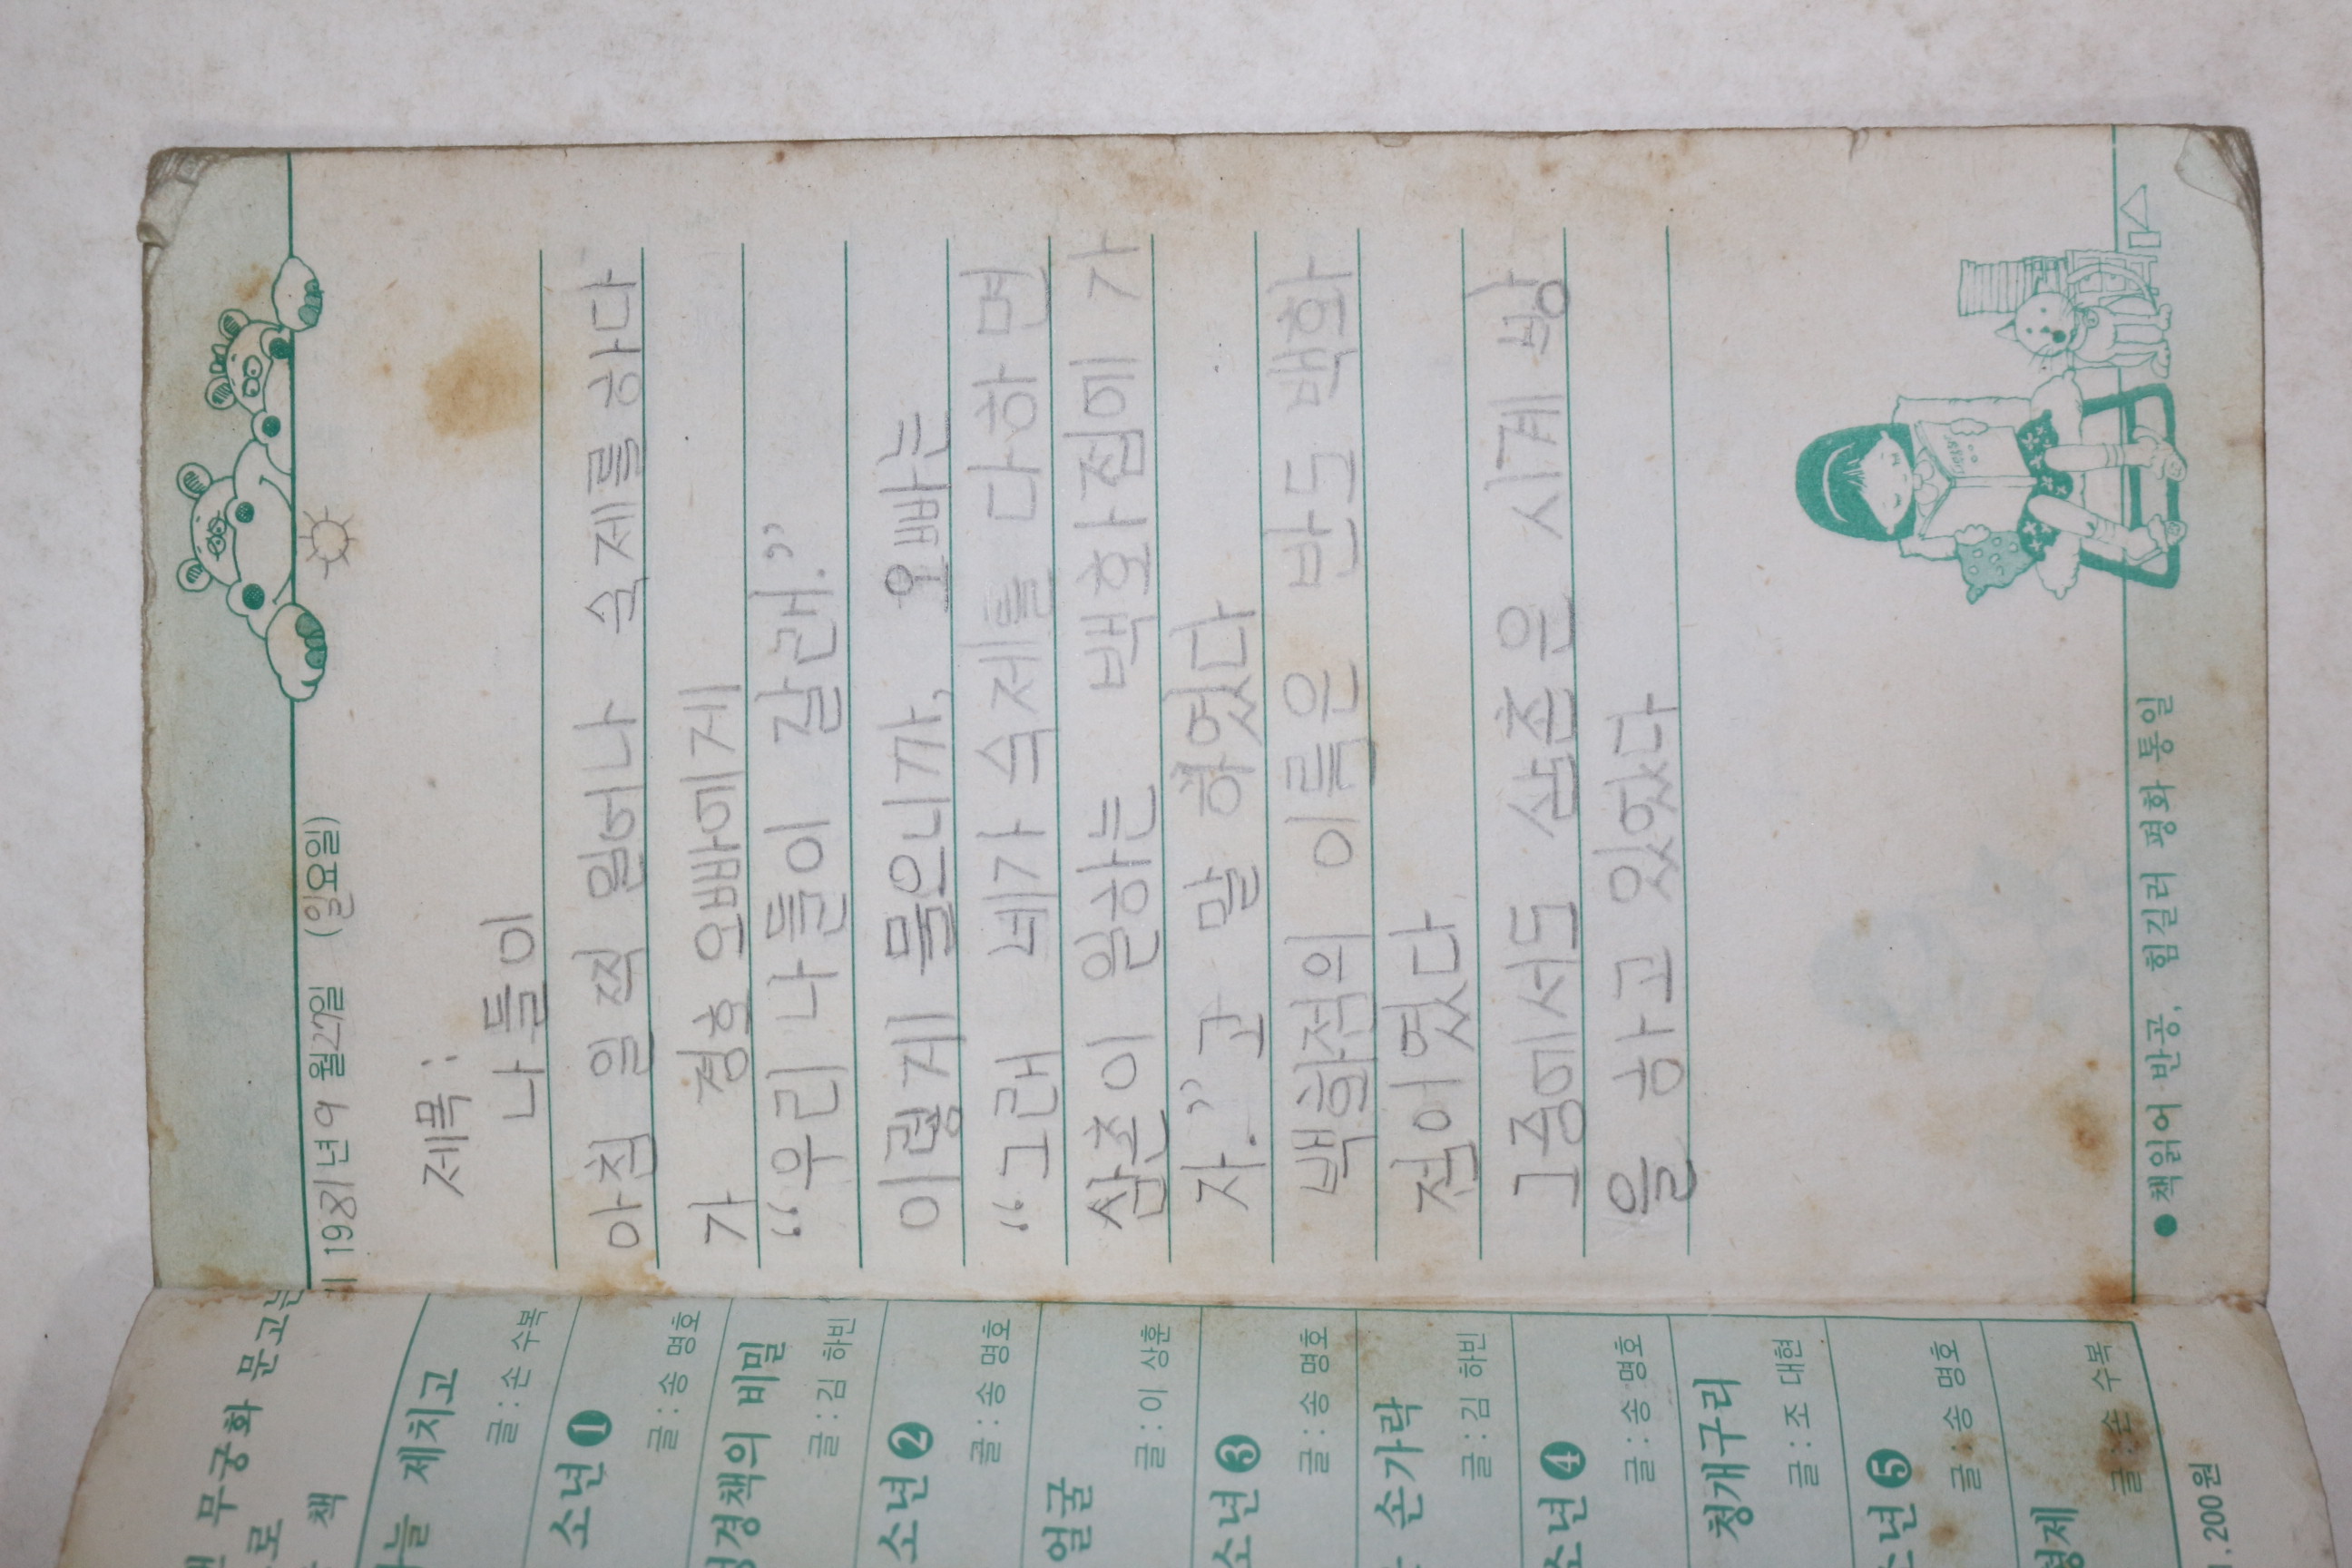 1981년 9월 27일 (일요일)
제목:
나들이
아침 일찍 일어나 숙제를 하다
가 정호 오빠에게
“우리 나들이 갈래.”
이렇게 물으니까, 오빠는
“그래 네가 숙제를 다하면
삼촌이 일하는 백화점에 가
자.”고 말 하였다
백화점의 이름은 반도 백화
점이였다
그중에서도 삼촌은 시계 방
을 하고 있었다
●책읽어 반공, 힘길러 평화 통일
무궁화 문고는
책
제치고
글:손 수복
소년❶
글:송 명호
성경책의 비밀
글:김 하빈
소년❷
글:송 명호
얼굴
글:이 상훈
소년❸
글:송 명호
손가락
글:김 하빈
소년❹
글:송 명호
청개구리
글:조 대현
소년❺
글:송 명호
형제
글:손 수복
,200원